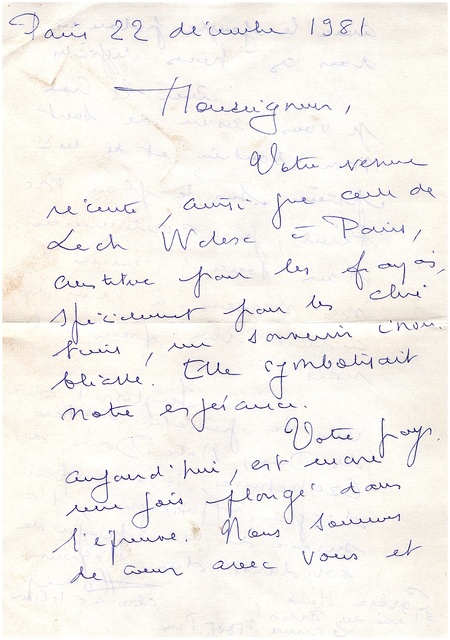 Paris 22 décembre 1981
Monseigneur,
Votre venue
récente, ainsi que celle de
Lech Walesa à Paris,
constitue pour les français,
spécialement pour les chré
tiens, un souvenir inou
bliable. Elle symbolisait
notre espérance.
Votre pays,
aujourd'hui, est encore
une fois plongé dans
l'épreuve. Nous sommes
de cœur avec vous et